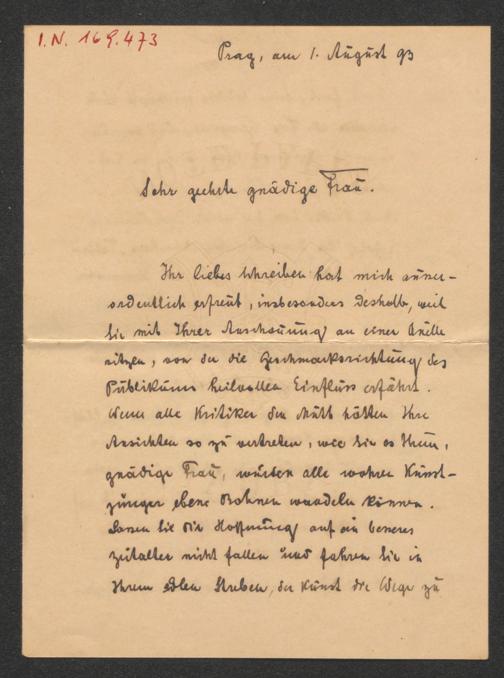 I.N. 169.473
Prag, am 1. August 93
Sehr geehrte gnädige Frau.
Ihr liebes Schreiben hat mich ausser-
ordentlich erfreut, insbesonders deshalb, weil
Sie mit Ihrer Anschauung an einer Quelle
sitzen, von der die Geschmacksrichtung des
Publikums heilvollen Einfluss erfährt.
Wenn alle Kritiker den Muth hätten Ihre
Ansichten so zu vertreten, wie Sie es thun,
gnädige Frau, würden alle wahren Kunst-
jünger ebene Bahnen wandeln können.
Lassen Sie die Hoffnung auf ein besseres
Zeitalter nicht fallen und fahren Sie in
Ihrem edlen Streben, der Kunst die Wege zu